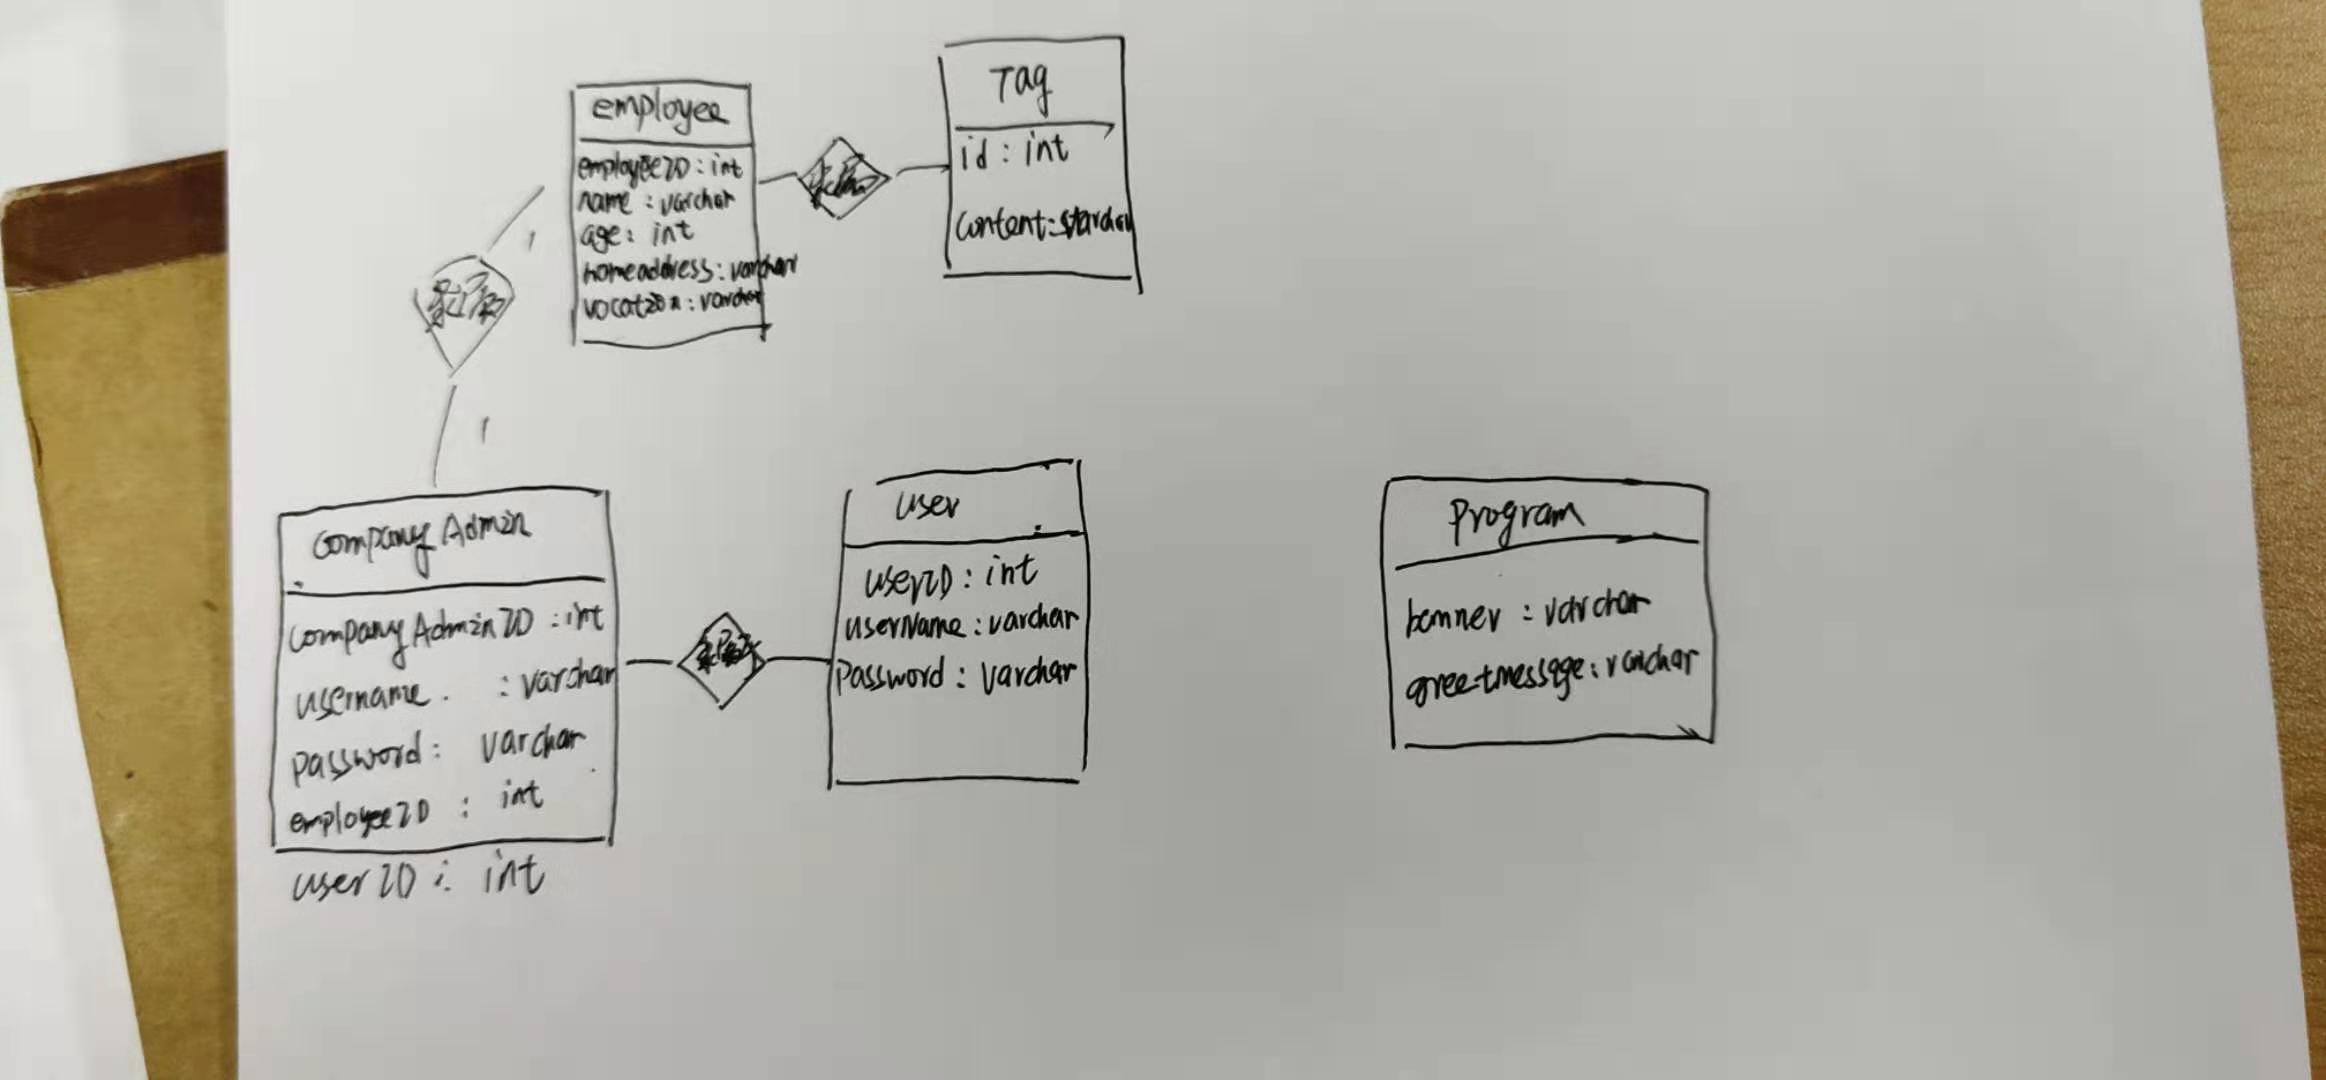 employee
employeeID : int
name : varchar
age : int
homeaddress : varchar
vocation : varchar
Tag
id : int
content :
1
1
Company Admin
Company Admin ID : int
username . : varchar
password : varchar
employee ID : int
user ID : int
user
userID : int
userName : varchar
password : varchar
Program
banner : varchar
greetmessage : varchar